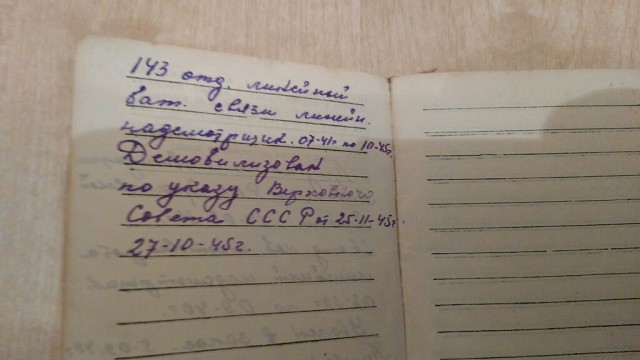 143 отд. линейной
бат. связи линейн.
надсмотрщик. 07-41г по 10-45г.
Демобилизован
по указу Верховного
Совета СССР от 25-11-45г
27-10-45г.